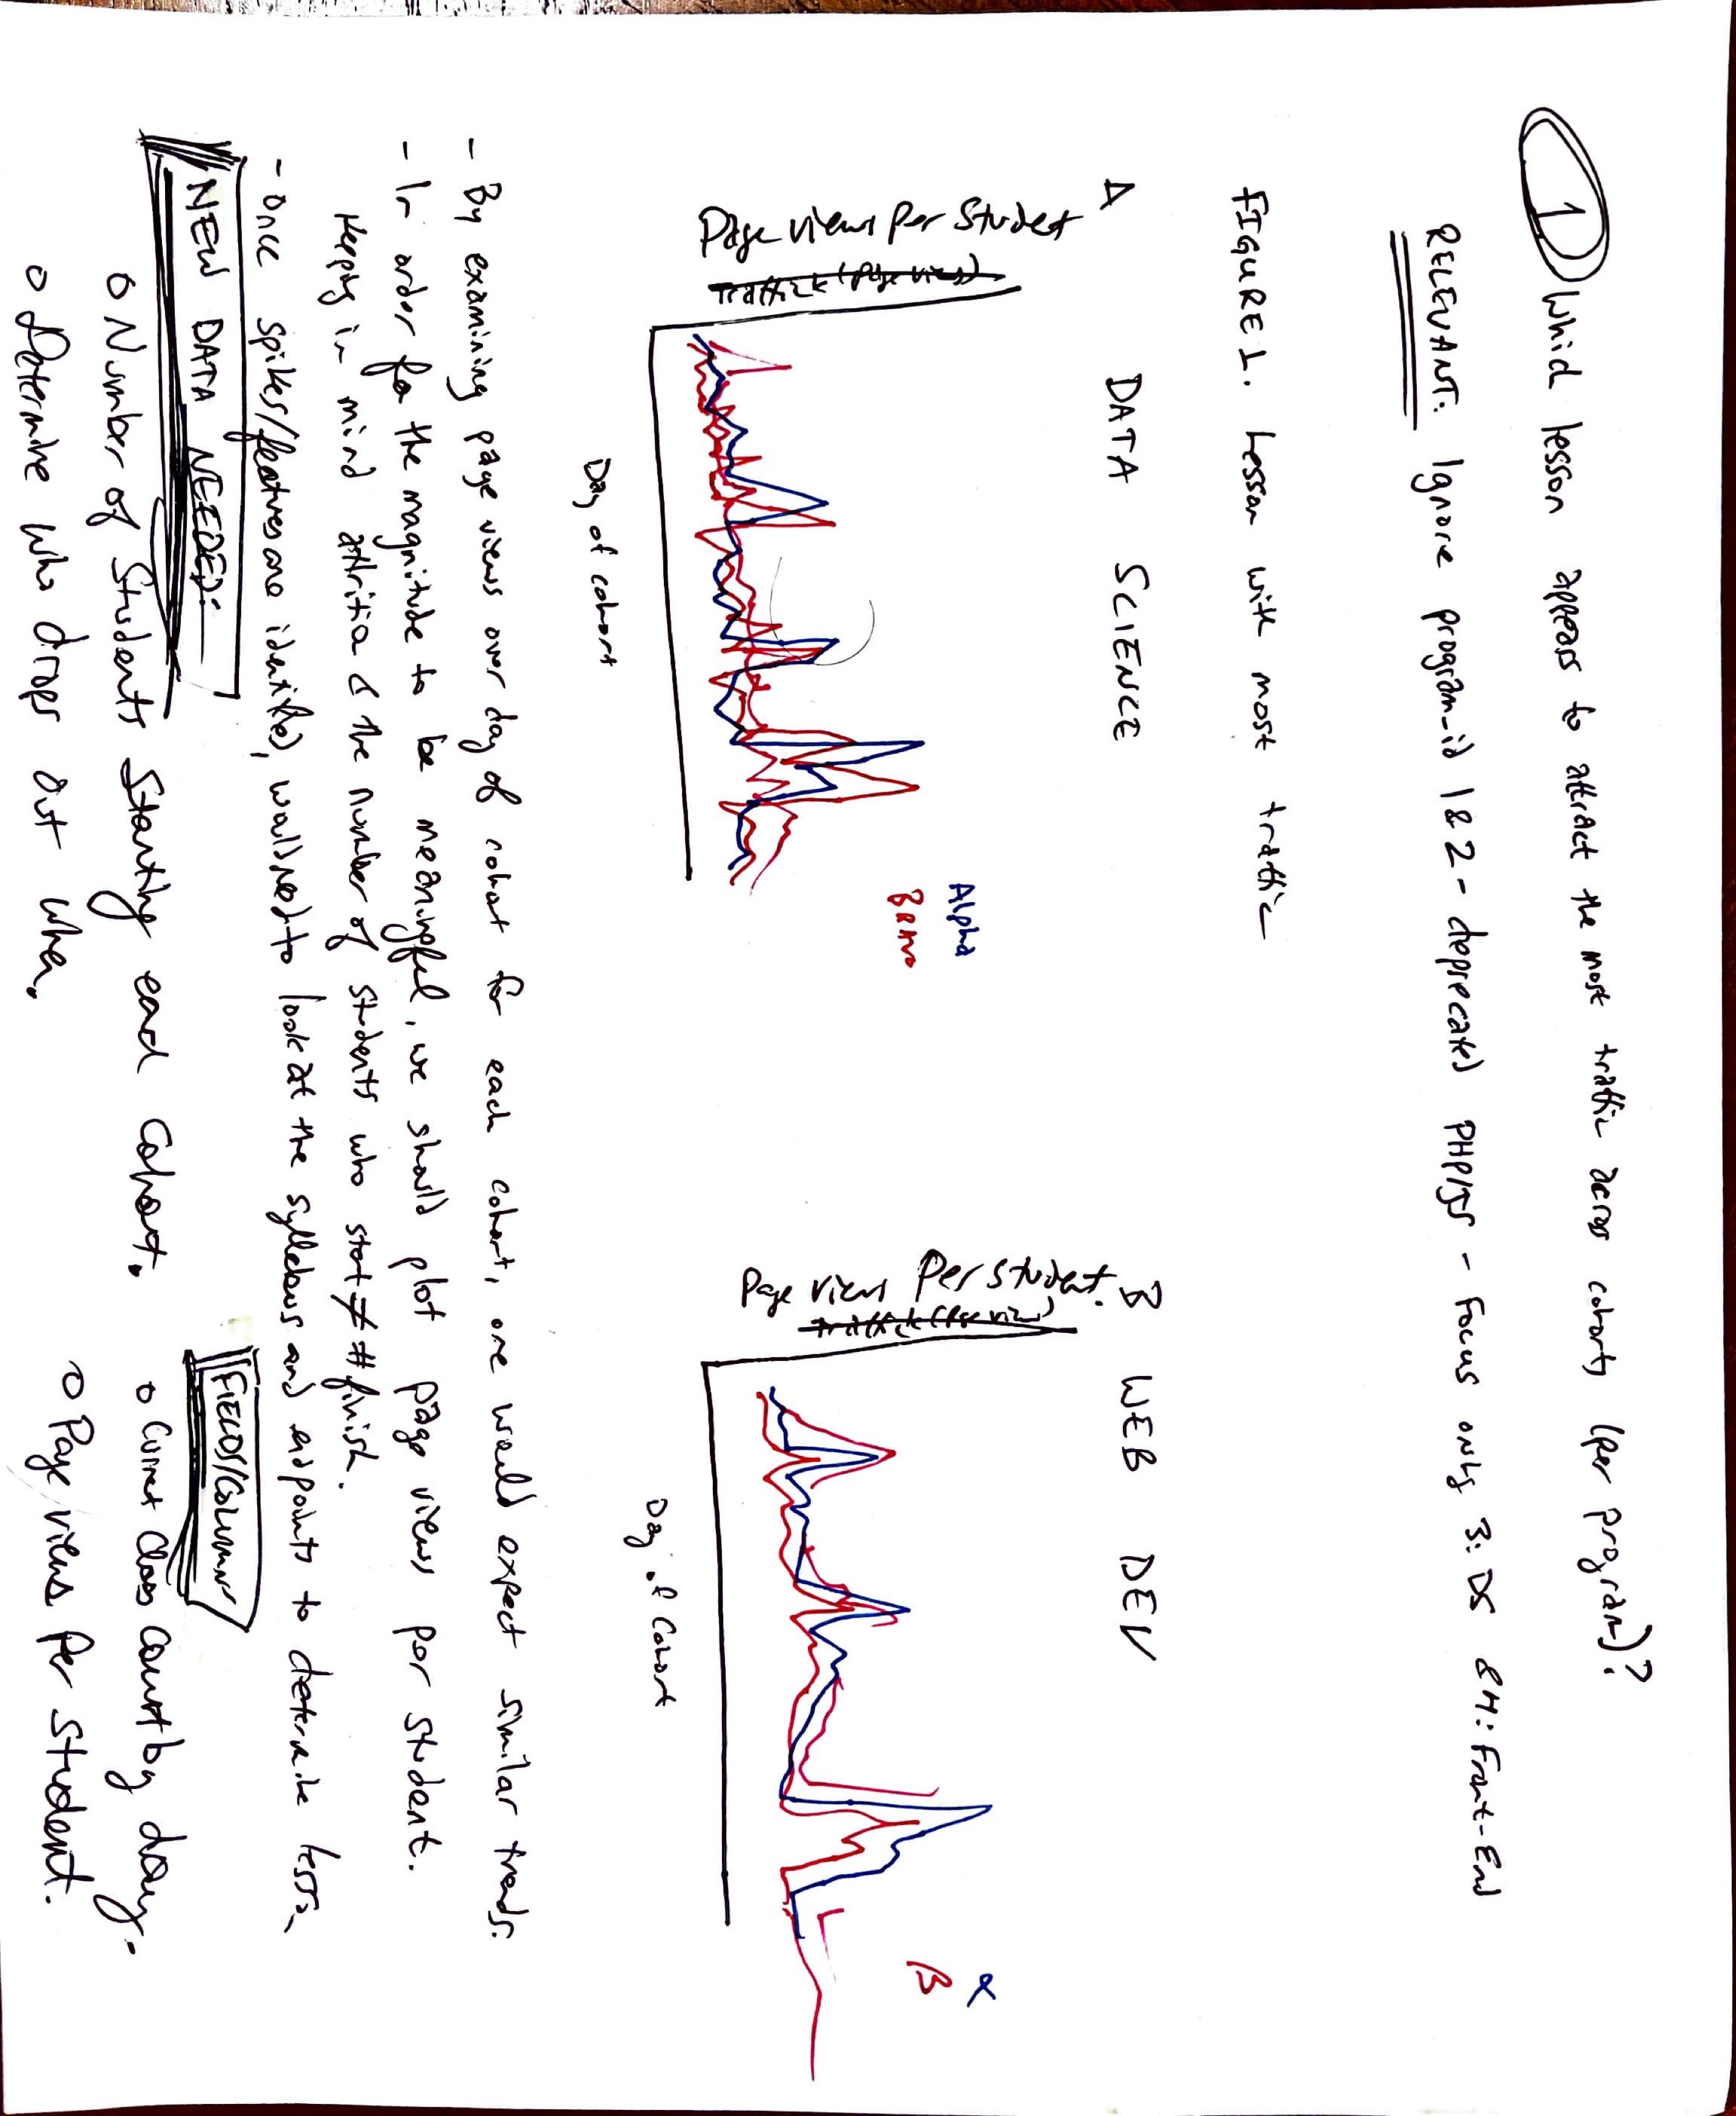 1 Which lesson appears to attract the most traffic across cohorts (per program)?
RELEVANT: Ignore program_id 1 & 2 - deprecated PHP/JS - Focus only 3: DS & 4: Front-End
FIGURE 1. Lesson with most traffic
A DATA SCIENCE
Page views per Student
Traffick (page views)
Alpha
Bravo
Day of cohort
B WEB DEV
Page views Per student.
Traffick (Page views)
α
β
Day of Cohort
- By examining page views over day of cohort for each cohort, one would expect similar trends.
- In order for the magnitude to be meaningful, we should plot page views per student.
Keeping in mind attrition & the number of students who start ≠ # finish.
- Once spikes/features are identified, would need to look at the syllabus and endpoints to determine lesson
NEW DATA NEEDED:
o Number of Students Starting each Cohort.
o Determine who drops out when.
FIELDS/COLUMNS
o Current class count by day.
o Page views Per Student.